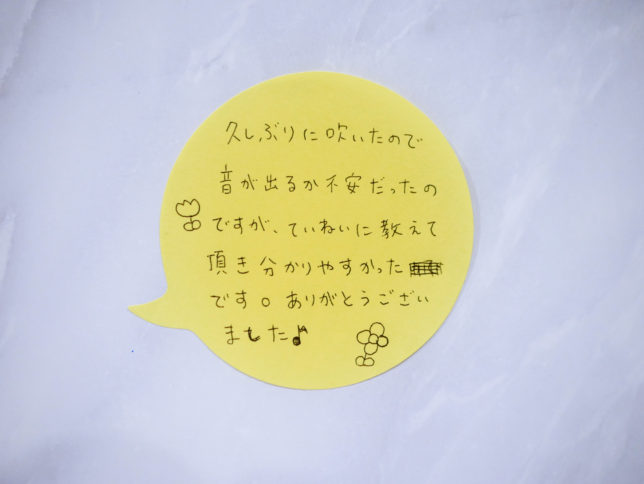 久しぶりに吹いたので
音が出るか不安だったの
ですが、ていねいに教えて
頂き分かりやすかった
です。ありがとうござい
ました♪